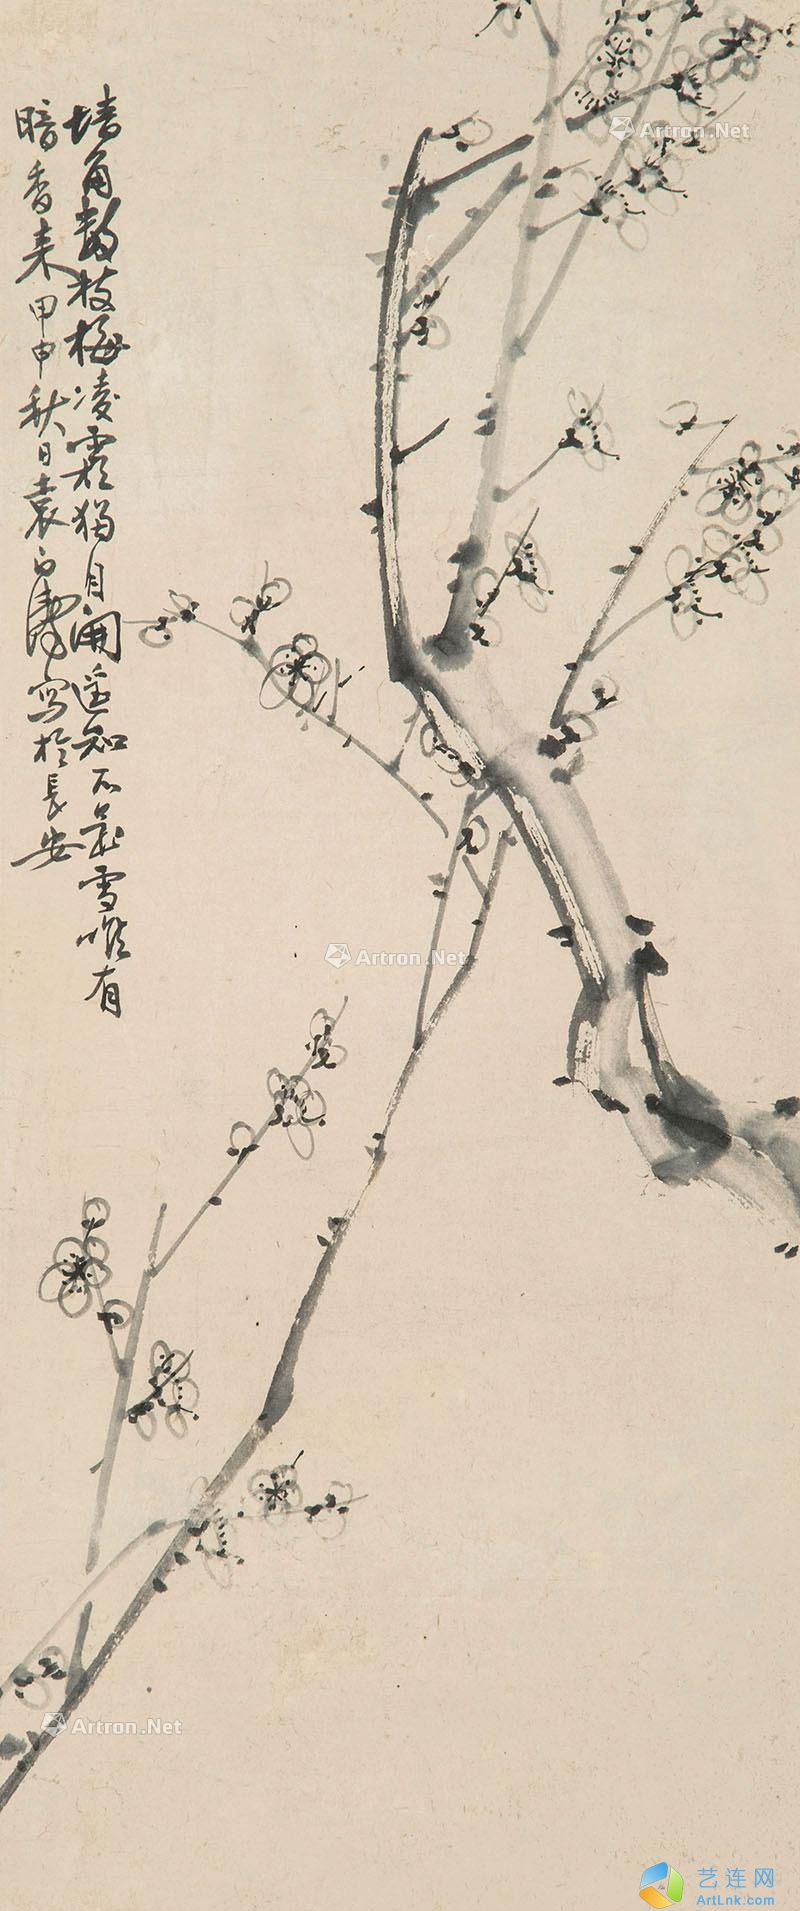 墙角數枝梅凌霜獨自開遥知不是雪唯有
暗香来甲申秋日袁白濤寫於長安
Artron.Net
Artron.Net
Artron.Net
艺连网
ArtLnk.com